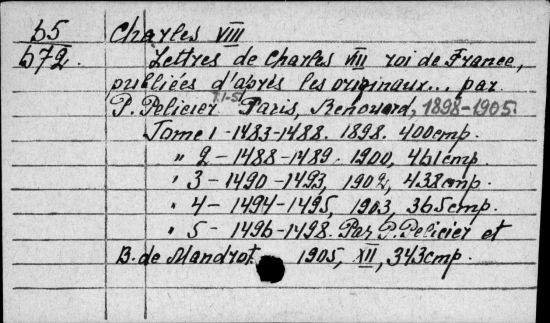 б5 Charles VIII
б72. Lettres de Charles VIII roi de France,
publiées d'après les originaux... par
P. Pelicier T.1-5. Paris, Renouard, 1898-1905.
Tome 1 - 1483-1488. 1898. 400 стр.
" 2 - 1488-1489. 1900, 461 стр.
" 3 - 1490-1493, 1902, 438 стр.
" 4 - 1494-1495, 1903, 365 стр.
" 5 - 1496-1498. Par P. Pelicier et
B. de Mandrot 1905, XII, 343 стр.